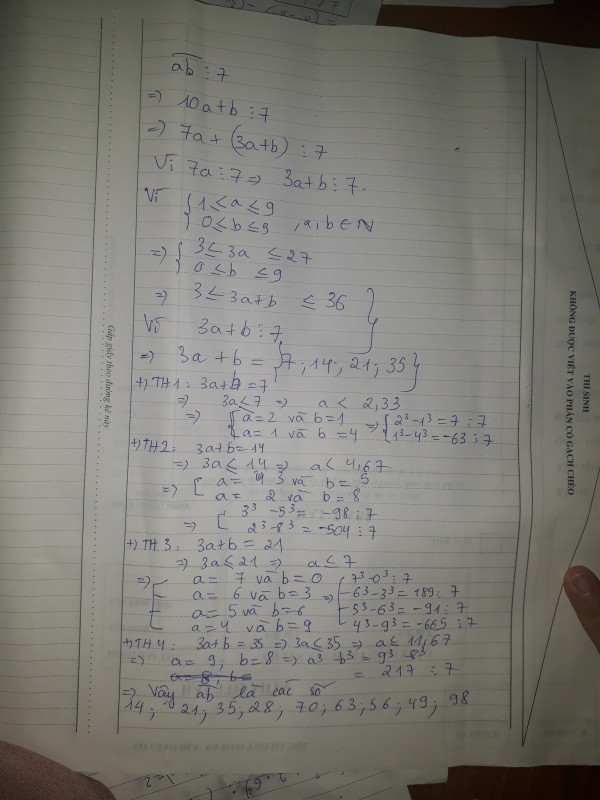 ab ⋮ 7
=> 10a+b ⋮ 7
=> 7a + (3a+b) ⋮ 7
Vì 7a ⋮ 7 => 3a+b ⋮ 7.
Vì { 1 ≤ a ≤ 9
0 ≤ b ≤ 9 , a, b ∈ N
=> { 3 ≤ 3a ≤ 27
0 ≤ b ≤ 9
=> 3 ≤ 3a+b ≤ 36 }
Vì 3a+b ⋮ 7
=> 3a + b = { 7 ; 14 ; 21 ; 35 }
+) TH1: 3a+b = 7
=> 3a ≤ 7 => a < 2,33
=> { a = 2 và b = 1 => { 2³ - 1³ = 7 ⋮ 7
a = 1 và b = 4 1³ - 4³ = -63 ⋮ 7
+) TH2: 3a+b = 14
=> 3a ≤ 14 => a < 4,67
=> [ a = 3 và b = 5
a = 2 và b = 8
=> [ 3³ - 5³ = -98 ⋮ 7
2³ - 8³ = -504 ⋮ 7
+) TH3: 3a+b = 21
=> 3a ≤ 21 => a ≤ 7
=> [ a = 7 và b = 0 => [ 7³ - 0³ ⋮ 7
a = 6 và b = 3 6³ - 3³ = 189 ⋮ 7
a = 5 và b = 6 5³ - 6³ = -91 ⋮ 7
a = 4 và b = 9 4³ - 9³ = -665 ⋮ 7
+) TH4: 3a+b = 35 => 3a ≤ 35 => a ≤ 11,67
=> a = 9, b = 8 => a³ - b³ = 9³ - 8³
a = 8, b = = 217 ⋮ 7
=> Vậy ab là các số
14 ; 21 ; 35 ; 28 ; 70 ; 63 ; 56 ; 49 ; 98
Gấp giấy theo đường kẻ này
THÍ SINH
KHÔNG ĐƯỢC VIẾT VÀO PHẦN CÓ GẠCH CHÉO